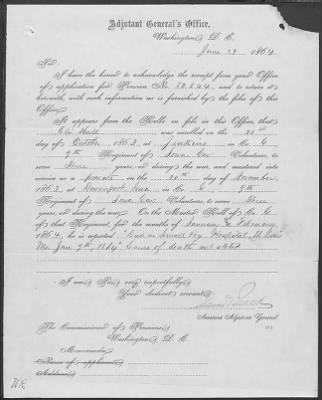 Adjutant General's Office,
Washington, D. C.
June 29, 1864
Sir:
I have the honor to acknowledge the receipt from your Office
of application for Pension No. 58.644, and to return it
herewith, with such information as is furnished by the files of this
Office.
It appears from the Rolls on file in this Office, that
Eli Hull was enrolled on the 21st
day of October, 1863, at in Co. G
9th Regiment of Iowa Cav Volunteers, to
serve three years, or during the war, and mustered into
service as a private on the 30th day of November,
1863, at Davenport, Iowa, in Co. G, 9th
Regiment of Iowa Cav Volunteers, to serve three
years, or during the war. On the Muster Roll of Co. G
of that Regiment, for the months of January & February,
1864, he is reported "Died in Small Pox Hospital St Louis
Mo Jan 9th, 1864" Cause of death not stated.
I am, Sir, very respectfully,
Your obedient servant,
Assistant Adjutant General.
The Commissioner of Pensions,
Washington, D. C.
Memoranda:
Name of applicant
Address